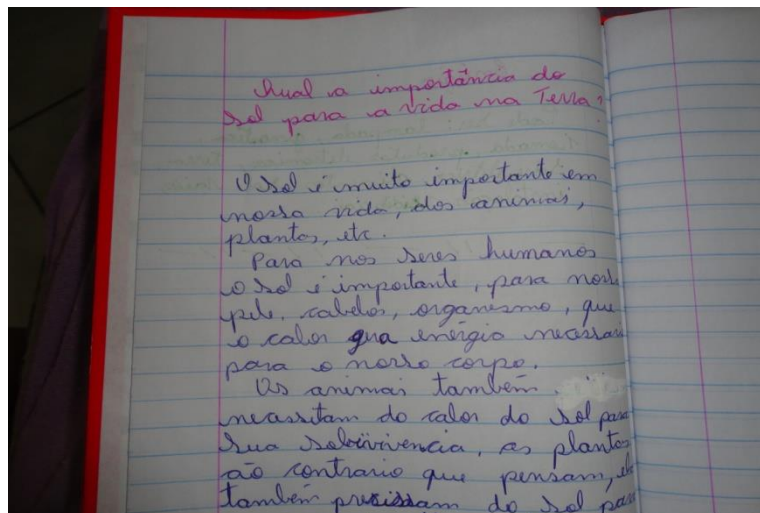 Qual a importância do
Sol para a vida na Terra?
O Sol é muito importante em
nossa vida, dos animais,
plantas, etc.
Para nos seres humanos
o sol é importante, para nossa
pele, cabelos, organesmo, que
o calor gua enérgia necessari
para o nosso corpo.
Os animai também
necassitam do calor do sol para
sua sobrivivencia, as plantas
ão contrario que pensam,
também presissam do sol para